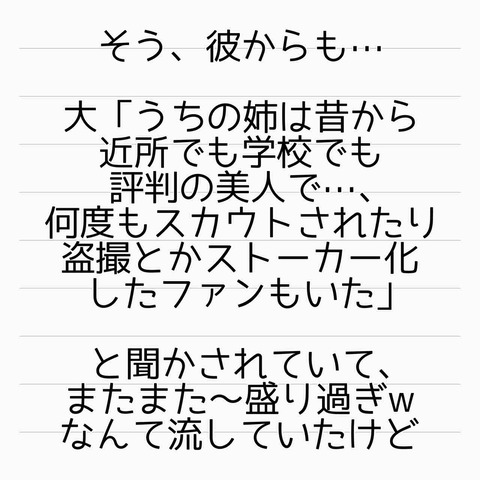 そう、彼からも…
大「うちの姉は昔から
近所でも学校でも
評判の美人で…、
何度もスカウトされたり
盗撮とかストーカー化
したファンもいた」
と聞かされていて、
またまた〜盛り過ぎw
なんて流していたけど